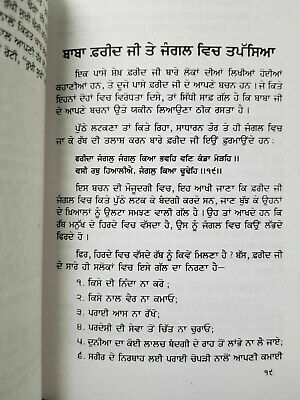 ਬਾਬਾ ਫ਼ਰੀਦ ਜੀ ਤੇ ਜੰਗਲ ਵਿਚ ਤਪੱਸਿਆ
ਇਕ ਪਾਸੇ ਸ਼ੇਖ਼ ਫ਼ਰੀਦ ਜੀ ਬਾਰੇ ਲੋਕਾਂ ਦੀਆਂ ਲਿਖੀਆਂ ਹੋਈਆਂ
ਕਹਾਣੀਆਂ ਹਨ, ਤੇ ਦੂਜੇ ਪਾਸੇ ਫ਼ਰੀਦ ਜੀ ਦੇ ਆਪਣੇ ਬਚਨ ਹਨ। ਜੇ ਕਿਤੇ
ਇਹਨਾਂ ਦੋਹਾਂ ਵਿਚ ਵਿਰੋਧਤਾ ਦਿਸੇ, ਤਾਂ ਸਿੱਧੀ ਸਾਫ਼ ਗੱਲ ਹੈ ਕਿ ਬਾਬਾ ਜੀ
ਦੇ ਆਪਣੇ ਬਚਨਾਂ ਉਤੇ ਯਕੀਨ ਲਿਆਉਣਾ ਠੀਕ ਰਸਤਾ ਹੈ।
ਪੁੱਠੇ ਲਟਕਣਾ ਤਾਂ ਕਿਤੇ ਰਿਹਾ, ਸਾਧਾਰਨ ਤੌਰ ਤੇ ਹੀ ਜੰਗਲ ਵਿਚ
ਜਾ ਕੇ ਰੱਬ ਦੀ ਤਲਾਸ਼ ਕਰਨ ਬਾਰੇ ਫ਼ਰੀਦ ਜੀ ਇਉਂ ਫ਼ੁਰਮਾਉਂਦੇ ਹਨ :
ਫਰੀਦਾ ਜੰਗਲੁ ਜੰਗਲੁ ਕਿਆ ਭਵਹਿ ਵਣਿ ਕੰਡਾ ਮੋੜੇਹਿ॥
ਵਸੀ ਰਬੁ ਹਿਆਲੀਐ, ਜੰਗਲੁ ਕਿਆ ਢੂਢੇਹਿ॥੧੯॥
ਇਸ ਬਚਨ ਦੀ ਮੌਜੂਦਗੀ ਵਿਚ, ਇਹ ਆਖੀ ਜਾਣਾ ਕਿ ਫ਼ਰੀਦ ਜੀ
ਜੰਗਲ ਵਿਚ ਕਿਤੇ ਪੁੱਠੇ ਲਟਕ ਕੇ ਬੰਦਗੀ ਕਰਦੇ ਸਨ, ਜਾਣ ਬੁੱਝ ਕੇ ਉਹਨਾਂ
ਦੇ ਖ਼ਿਆਲਾਂ ਨੂੰ ਉਲਟਾ ਸਮਝਣ ਵਾਲੀ ਗੱਲ ਹੈ। ਉਹ ਤਾਂ ਆਖਦੇ ਹਨ ਕਿ
ਰੱਬ ਮਨੁੱਖ ਦੇ ਹਿਰਦੇ ਵਿਚ ਵਸਦਾ ਹੈ, ਉਸ ਨੂੰ ਜੰਗਲ ਵਿਚ ਕਿਉਂ ਲੱਭਦੇ
ਫਿਰਦੇ ਹੋ।
ਫਿਰ, ਹਿਰਦੇ ਵਿਚ ਵੱਸਦੇ ਰੱਬ ਨੂੰ ਕਿਵੇਂ ਮਿਲਣਾ ਹੈ? ਬੱਸ, ਫ਼ਰੀਦ ਜੀ
ਦੇ ਸਾਰੇ ਹੀ ਸਲੋਕਾਂ ਵਿਚ ਇਸੇ ਗੱਲ ਦਾ ਨਿਰਣਾ ਹੈ :—
੧. ਕਿਸੇ ਦੀ ਨਿੰਦਾ ਨਾ ਕਰੋ ;
੨. ਕਿਸੇ ਨਾਲ ਵੈਰ ਨਾ ਕਮਾਓ;
੩. ਪਰਾਈ ਆਸ ਨਾ ਰੱਖੋ;
੪. ਪਰਦੇਸੀ ਦੀ ਸੇਵਾ ਤੋਂ ਚਿੱਤ ਨਾ ਚੁਰਾਓ;
੫. ਦੁਨੀਆ ਦਾ ਕੋਈ ਲਾਲਚ ਬੰਦਗੀ ਦੇ ਰਾਹ ਤੋਂ ਲਾਂਭੇ ਨਾ ਲੈ ਜਾਏ;
੬. ਸਰੀਰ ਦੇ ਨਿਰਬਾਹ ਲਈ ਪਰਾਈ ਚੋਪੜੀ ਨਾਲੋਂ ਆਪਣੀ ਕਮਾਈ
੧੯